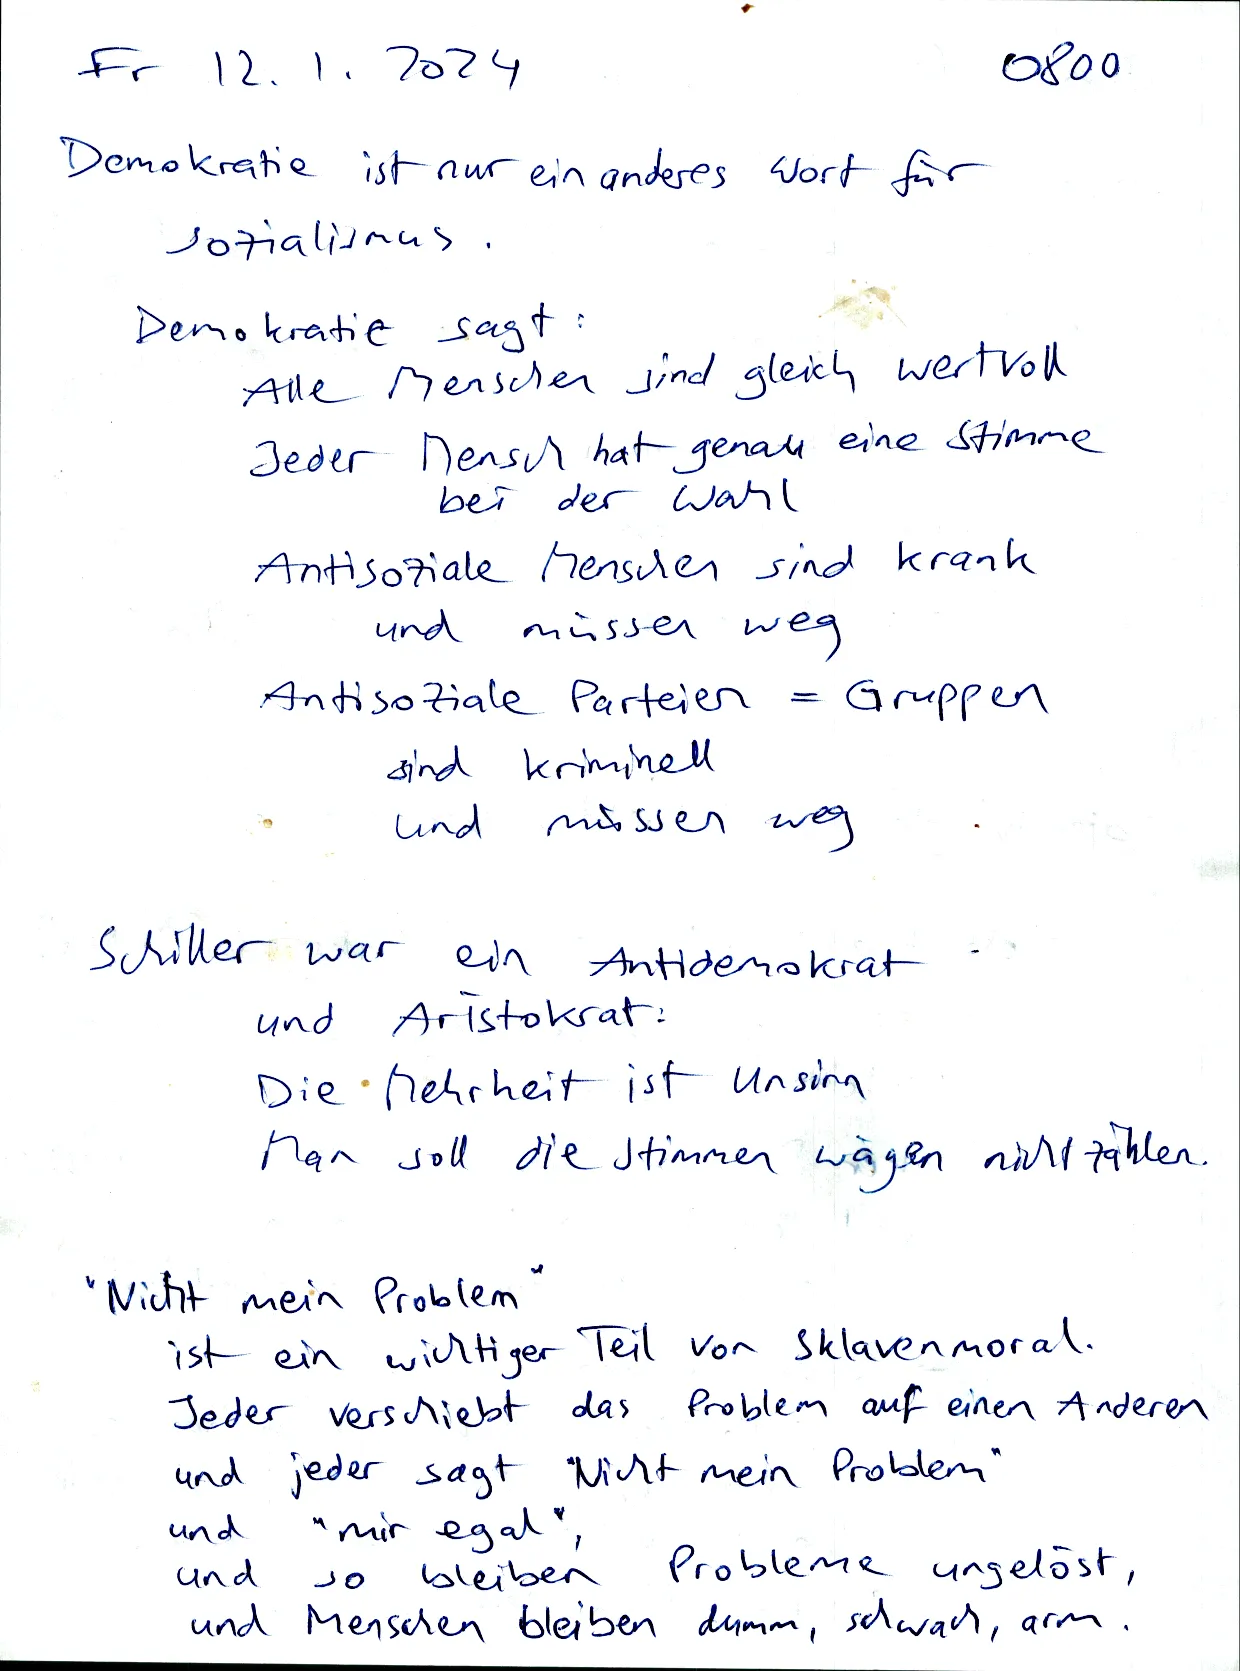 Fr 12.1.2024 0800
Demokratie ist nur ein anderes Wort für
Sozialismus.
Demokratie sagt:
Alle Menschen sind gleich wertvoll
Jeder Mensch hat genau eine Stimme
bei der Wahl
Antisoziale Menschen sind krank
und müssen weg
Antisoziale Parteien = Gruppen
sind kriminell
und müssen weg
Schiller war ein Antidemokrat
und Aristokrat:
Die Mehrheit ist Unsinn
Man soll die Stimmen wägen nicht zählen.
"Nicht mein Problem"
ist ein wichtiger Teil von Sklavenmoral.
Jeder verschiebt das Problem auf einen Anderen
und jeder sagt "Nicht mein Problem"
und "mir egal",
und so bleiben Probleme ungelöst,
und Menschen bleiben dumm, schwach, arm.